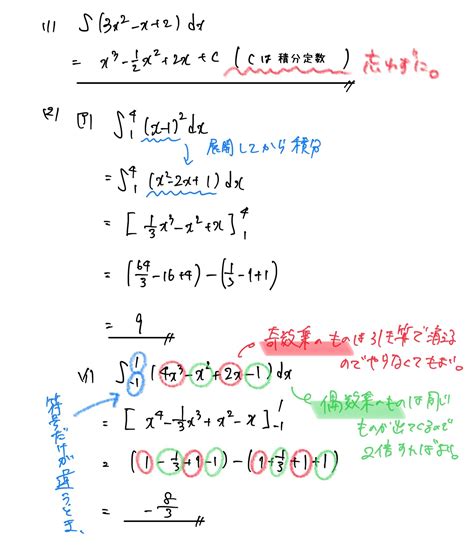 (1) ∫(3x²-x+2)dx
= x³-½x²+2x+C (Cは積分定数) 忘れずに。
(2) (ア) ∫₁⁴(x-1)²dx
展開してから積分
= ∫₁⁴(x²-2x+1)dx
= [⅓x³-x²+x]₁⁴
= (64/3-16+4)-(⅓-1+1)
= 9
奇数乗のものは引き算で消える
のでやらなくてもよい。
(イ) ∫₋₁¹(4x³-x²+2x-1)dx
偶数乗のものは同じ
ものが出てくるので
2倍すればよい。
符号だけが違うとき、
= [x⁴-⅓x³+x²-x]₋₁¹
= (1-⅓+1-1)-(1+⅓+1+1)
= -8/3